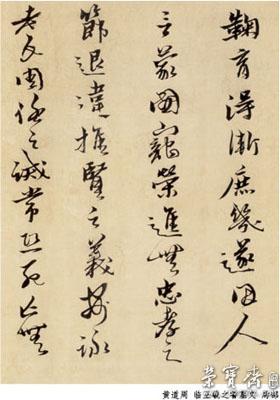 鞠育得漸庶幾遂因人
乏蒙國寵榮進無忠孝之
節退違推賢之義每詠
老氏周任之誡常恐死亡無
榮寶齋
黄道周 临王羲之告墓文 局部